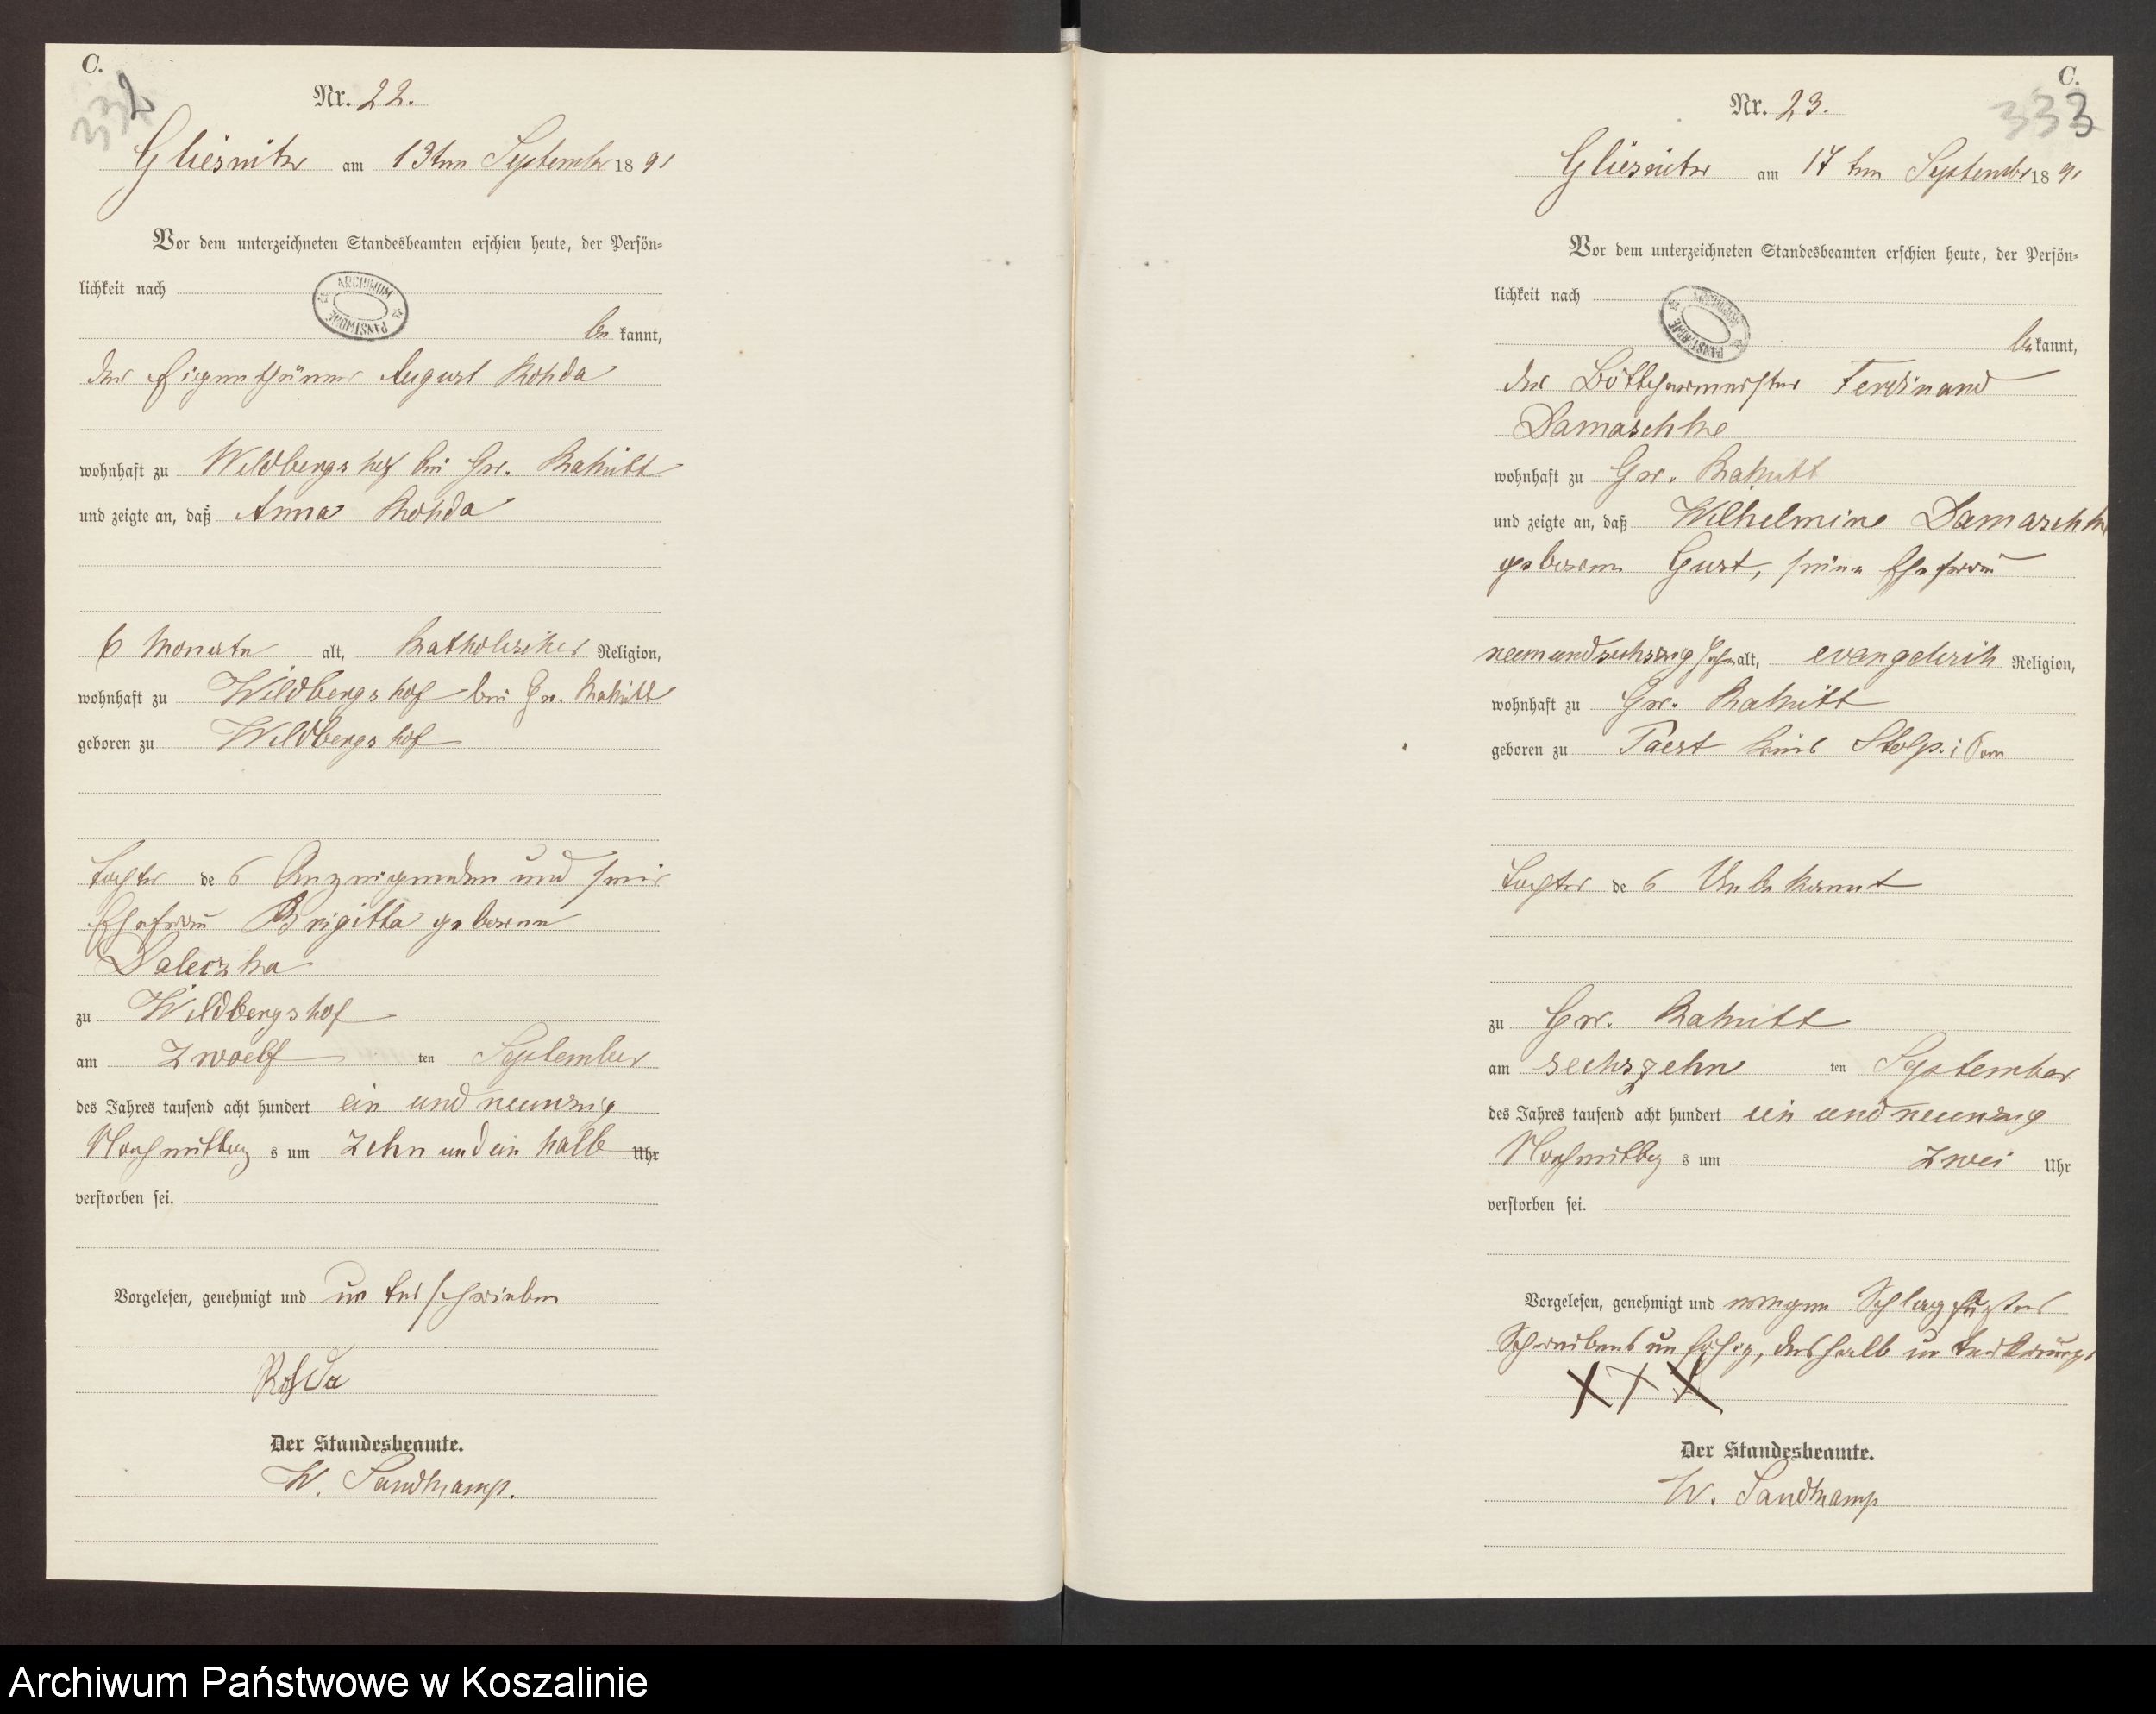 C.
332
Nr. 22.
Gliesnitz am 13ten September 1891
Vor dem unterzeichneten Standesbeamten erschien heute, der Persön-
lichkeit nach
ARCHIWUM PAŃSTWOWE
bekannt,
der Eigenthümer August Rohda
wohnhaft zu Wildbergshof bei Gr. Rakitt
und zeigte an, daß Anna Rohda
6 Monate alt, katholischer Religion,
wohnhaft zu Wildbergshof bei Gr. Rakitt
geboren zu Wildbergshof
Tochter des Anzeigenden und seiner
Ehefrau Brigitta geborene
zu Wildbergshof
am Zwoelf ten September
des Jahres tausend acht hundert ein und neunzig
Nachmittags um Zehn und ein halb Uhr
verstorben sei.
Vorgelesen, genehmigt und unterschrieben
Rohda
Der Standesbeamte.
W. Sandkamp.
C.
333
Nr. 23.
Gliesnitz am 17ten September 1891
Vor dem unterzeichneten Standesbeamten erschien heute, der Persön-
lichkeit nach
ARCHIWUM PAŃSTWOWE
bekannt,
der Böttchermeister Ferdinand
Damaschke
wohnhaft zu Gr. Rakitt
und zeigte an, daß Wilhelmine Damaschke
geborene Gust, seine Ehefrau
neunundsechszig Jahr alt, evangelisch Religion,
wohnhaft zu Gr. Rakitt
geboren zu Kreis Stolp i Pom
Tochter des Unbekannt
zu Gr. Rakitt
am sechszehn ten September
des Jahres tausend acht hundert ein und neunzig
Nachmittags um Zwei Uhr
verstorben sei.
Vorgelesen, genehmigt und wegen
Schreibens unfähig, deshalb unterkreuzt
XXX
Der Standesbeamte.
W. Sandkamp
Archiwum Państwowe w Koszalinie